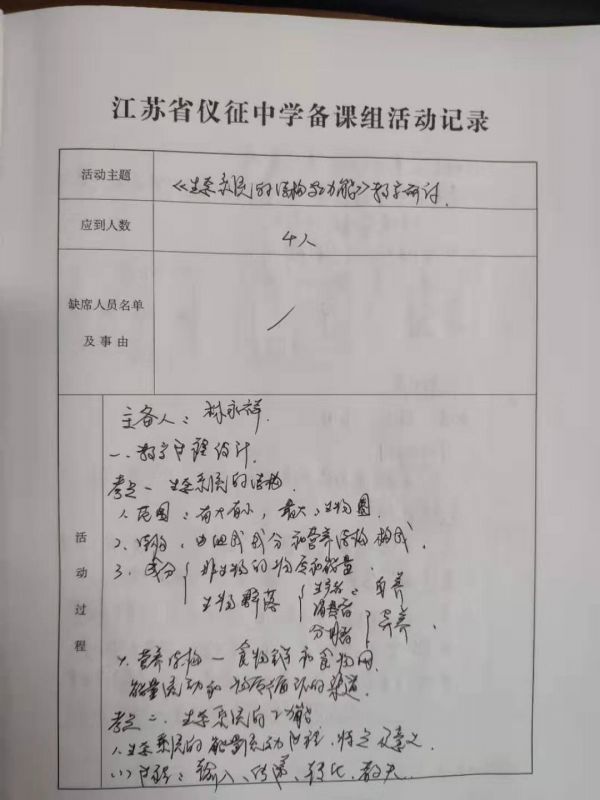 江苏省仪征中学备课组活动记录
活动主题
《生态系统的结构与功能》教学研许.
应到人数
4人
缺席人员名单
及事由
/
活动过程
主备人：林永祥.
一、教学过程设计.
考点一 生态系统的结构
1、范围：有大有小，最大：生物圈.
2、结构：由组成成分和营养结构构成.
3、成分 { 非生物的物质和能量
生物群落 { 生产者：自养
消费者
分解者 } 异养.
4、营养结构—食物链和食物网
能量流动和物质循环的渠道.
考点二、生态系统的功能
1、生态系统的能量流动过程，特点及意义.
(1)过程：输入、传递、转化、散失.